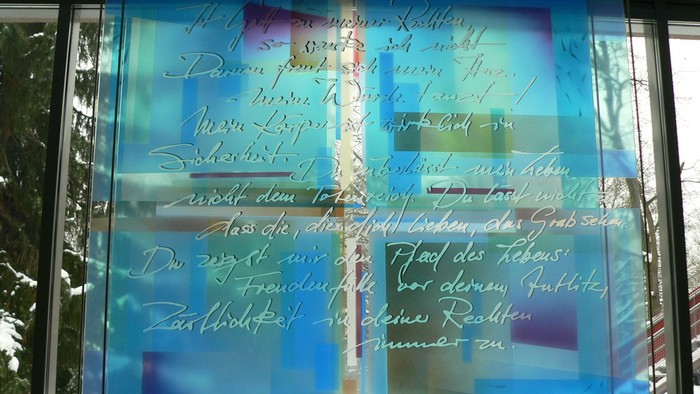 Ist Gott zu meiner Rechten,
so wanke ich nicht
Darum freut sich mein Herz.
meine Würde tanzt!
Mein Körper ist wirklich in
Sicherheit. Du überlässt mein Leben
nicht dem Totenreich. Du lässt nicht
dass die, die dich lieben, das Grab sehen.
Du zeigst mir den Pfad des Lebens:
Freudenfülle vor deinem Antlitz,
Zärtlichkeit in deiner Rechten
immer zu.